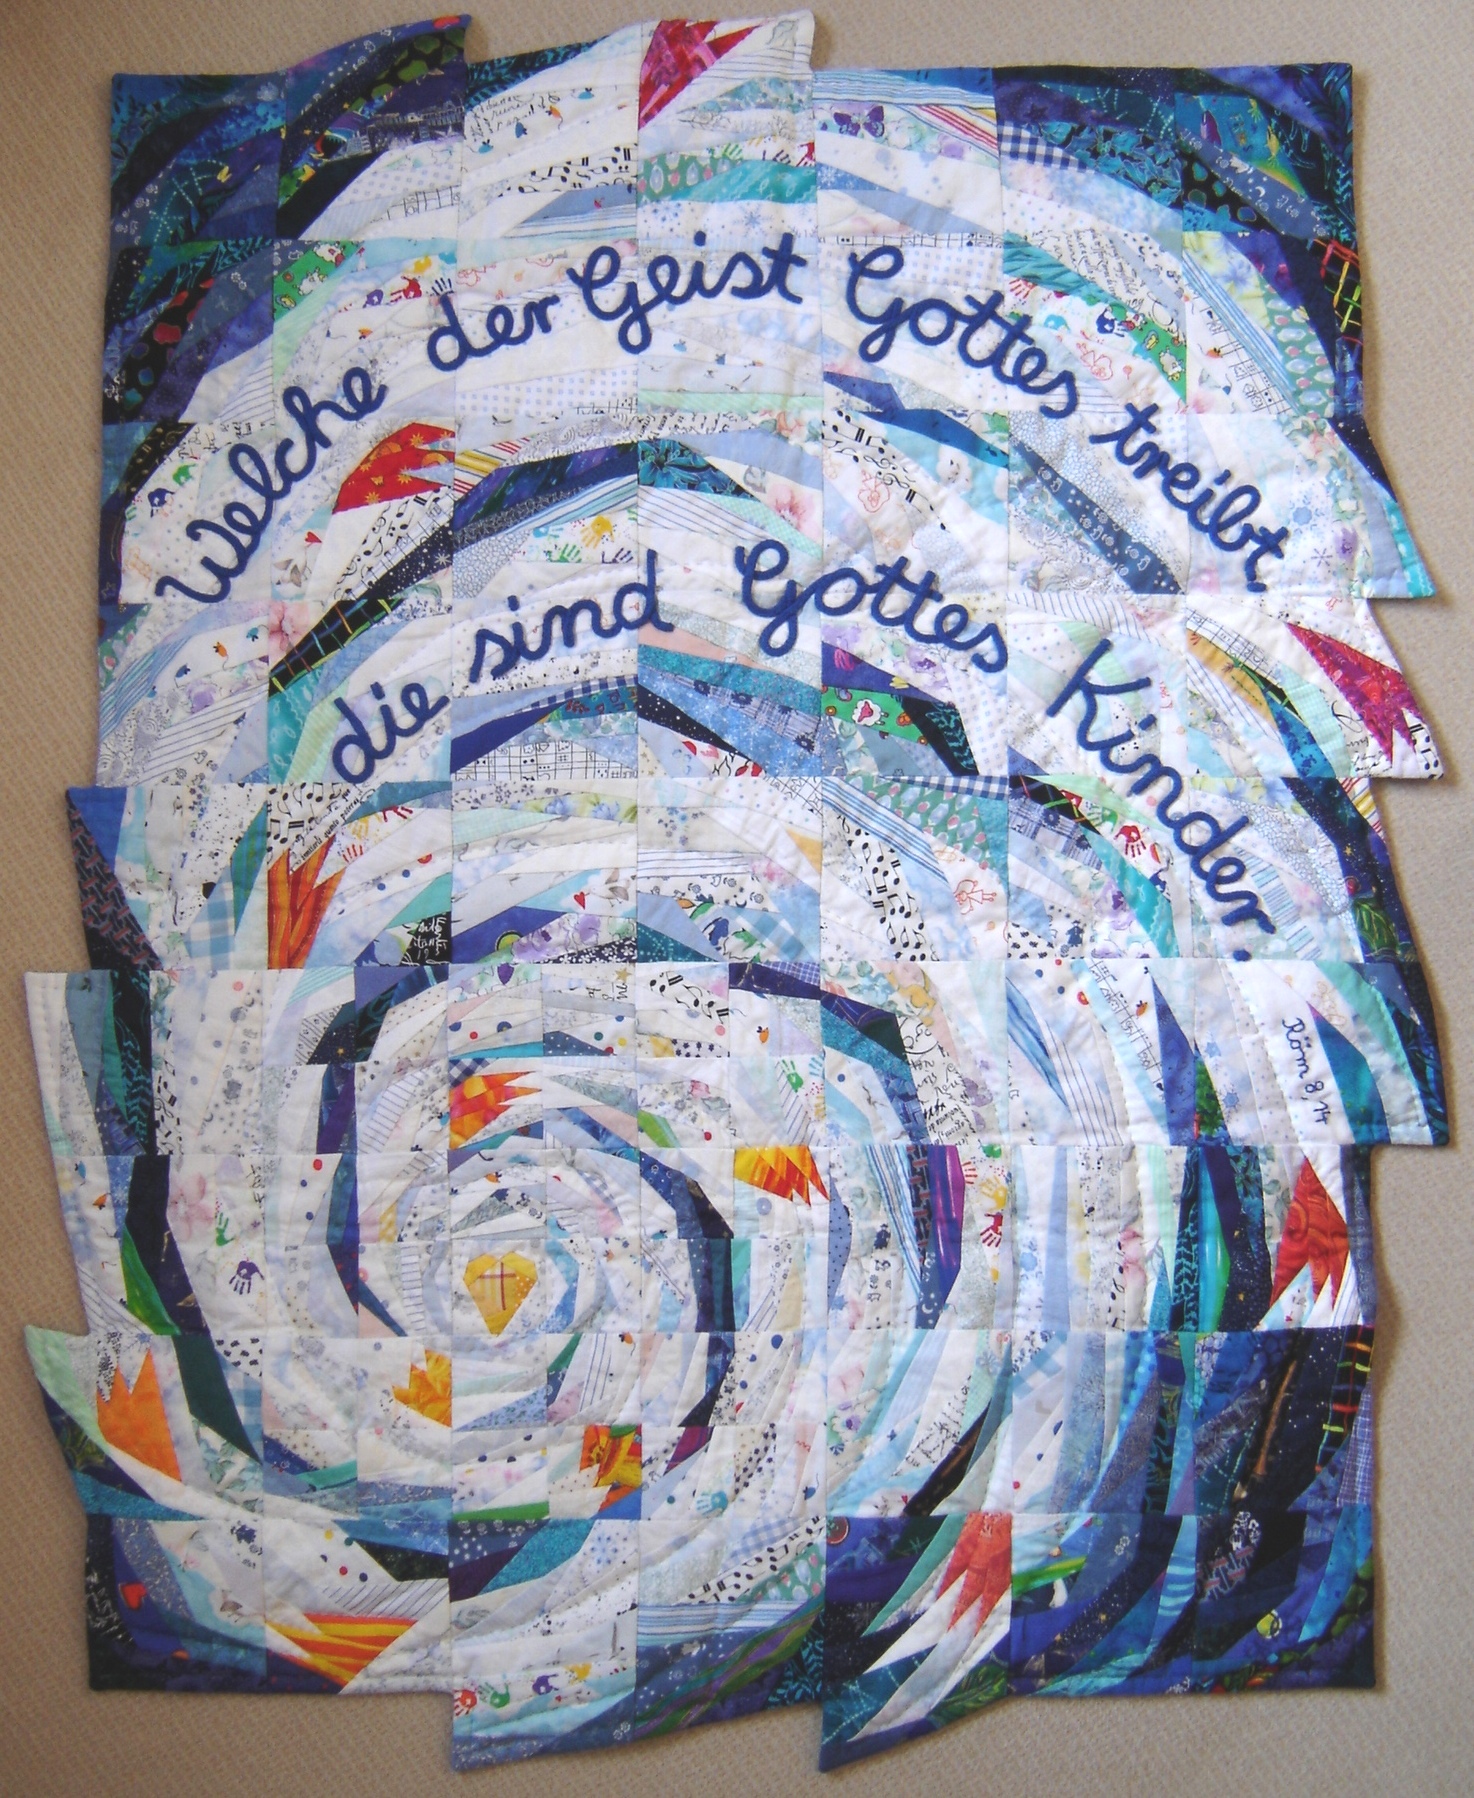 Welche der Geist Gottes treibt,
die sind Gottes Kinder.
Röm 8,14